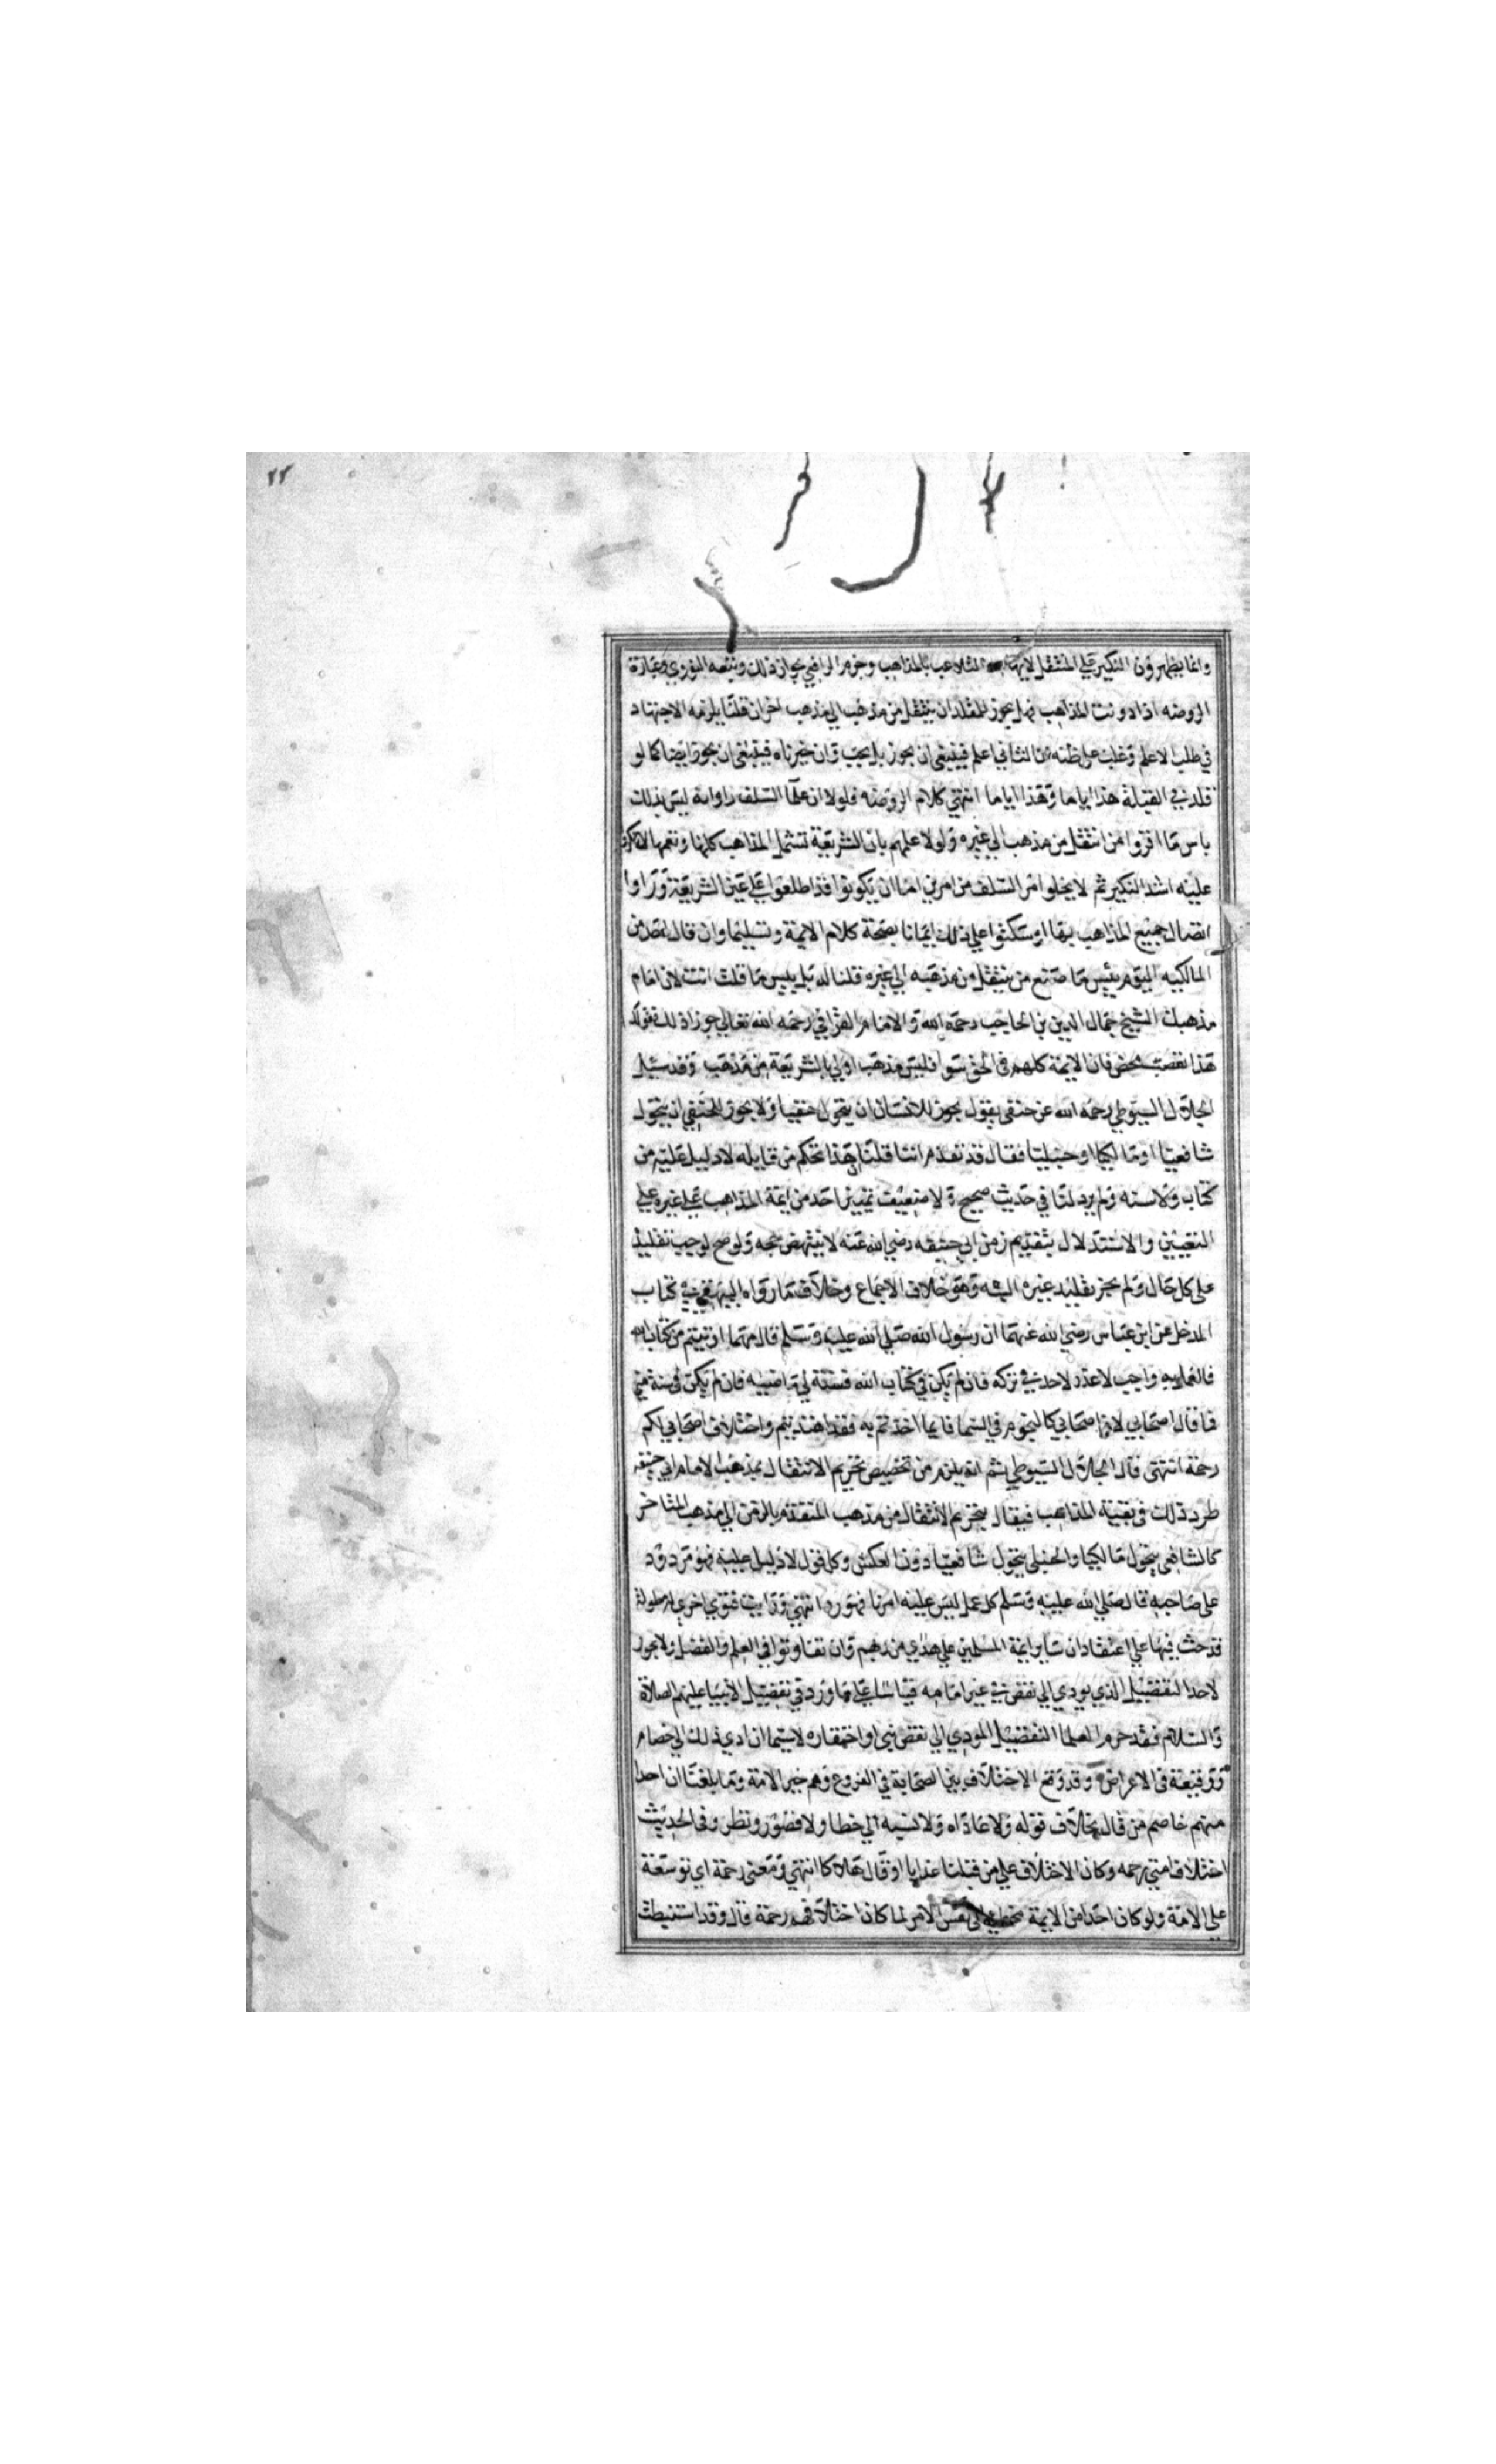 ٢٢
وانما يظهرون النكير على المنتقل لايهامه التلاعب بالمذاهب وجزم الرافعي بجواز ذلك وتبعه النووي وعبارة
الروضه اذا دونت المذاهب فهل يجوز للمقلد ان ينتقل من مذهب الى مذهب اخر ان قلنا يلزمه الاجتهاد
في طلب الاعلم وغلب على ظنه ان الثاني اعلم فينبغي ان يجوز بل يجب وان خيرناه فينبغي ان يجوز ايضا كما لو
قلد في القبلة هذا اياما وهذا اياما انتهى كلام الروضه فلولا ان علما السلف راوا انه ليس بذلك
باس ما اقروا من انتقل من مذهب الى غيره ولولا علمهم بان الشريعة تشمل المذاهب كلها وتعمها لانكروا
عليه اشد النكير ثم لا يخلو امر السلف من امرين اما ان يكونوا قد اطلعوا على عين الشريعة وراوا
اتصال جميع المذاهب بها او سكتوا على ذلك ايمانا بصحة كلام الايمة وتسليما وان قال احد من
المالكيه اليوم بيس ما صنع من ينتقل من مذهبه الى غيره قلنا له بل بيس ما قلت انت لان امام
مذهبك الشيخ جمال الدين بن الحاجب رحمه الله والامام القرافي رحمه الله تعالى جوزا ذلك فقولك
هذا تعصب محض فان الايمة كلهم في الحق سوا فليس مذهب اولى بالشريعة من مذهب وقد سيل
الجلال السيوطي رحمه الله عن حنفي يقول يجوز للانسان ان يتحول حنفيا ولا يجوز للحنفي ان يتحول
شافعيا او مالكيا او حنبليا فقال قد تقدم اننا قلنا هذا تحكم من قايله لا دليل عليه من
كتاب ولا سنه ولم يرد لنا في حديث صحيح ولا ضعيف تمييز احد من ايمة المذاهب على غيره على
التعيين والاستدلال بتقديم زمن ابي حنيفه رضي الله عنه لا ينتهض حجه ولو صح لوجب تقليده
على كل حال ولم يجز تقليد غيره البته وهو خلاف الاجماع وخلاف ما رواه البيهقي في كتاب
المدخل عن ابن عباس رضي الله عنهما ان رسول الله صلى الله عليه وسلم قال مهما اوتيتم من كتاب الله
فالعمل به واجب لا عذر لاحد في تركه فان لم يكن في كتاب الله فسنة لي ماضيه فان لم يكن في سنة مني
فما قال اصحابي لان اصحابي كالنجوم في السما فايما اخذتم به فقد اهتديتم واختلاف اصحابي لكم
رحمة انتهى قال الجلال السيوطي ثم انه يلزم من تخصيص تحريم الانتقال بمذهب الامام ابي حنيفه
طرد ذلك في بقية المذاهب فيقال بتحريم الانتقال من مذهب المتقدم بالزمن الى مذهب المتاخر
كالشافعي يتحول مالكيا والحنبلي يتحول شافعيا دون العكس وكل قول لا دليل عليه فهو مردود
على صاحبه قال صلى الله عليه وسلم كل عمل ليس عليه امرنا فهو رد انتهى ورايت فتوى اخرى له مطولة
قد حث فيها على اعتقاد ان ساير ايمة المسلمين على هدي من ربهم وان تفاوتوا في العلم والفضل ولا يجوز
لاحد التفضيل الذي يودي الى نقص في غير امامه قياسا على ما ورد في تفضيل الانبيا عليهم الصلاة
والسلام فقد حرم العلما التفضيل المودي الى نقص نبي او احتقاره لا سيما ان ادى ذلك الى خصام
ووقيعة في الاعراض وقد وقع الاختلاف بين الصحابة في الفروع وهم خير الامة وما بلغنا ان احدا
منهم خاصم من قال بخلاف قوله ولا عاداه ولا نسبه الى خطا ولا قصور ونظر وفى الحديث
اختلاف امتي رحمه وكان الاختلاف على من قبلنا عذابا او قال هلاكا انتهى ومعنى رحمة اي توسعة
على الامة ولو كان احد من الايمة مخطيا في نفس الامر لما كان اختلافهم رحمة قال وقد استنبطت